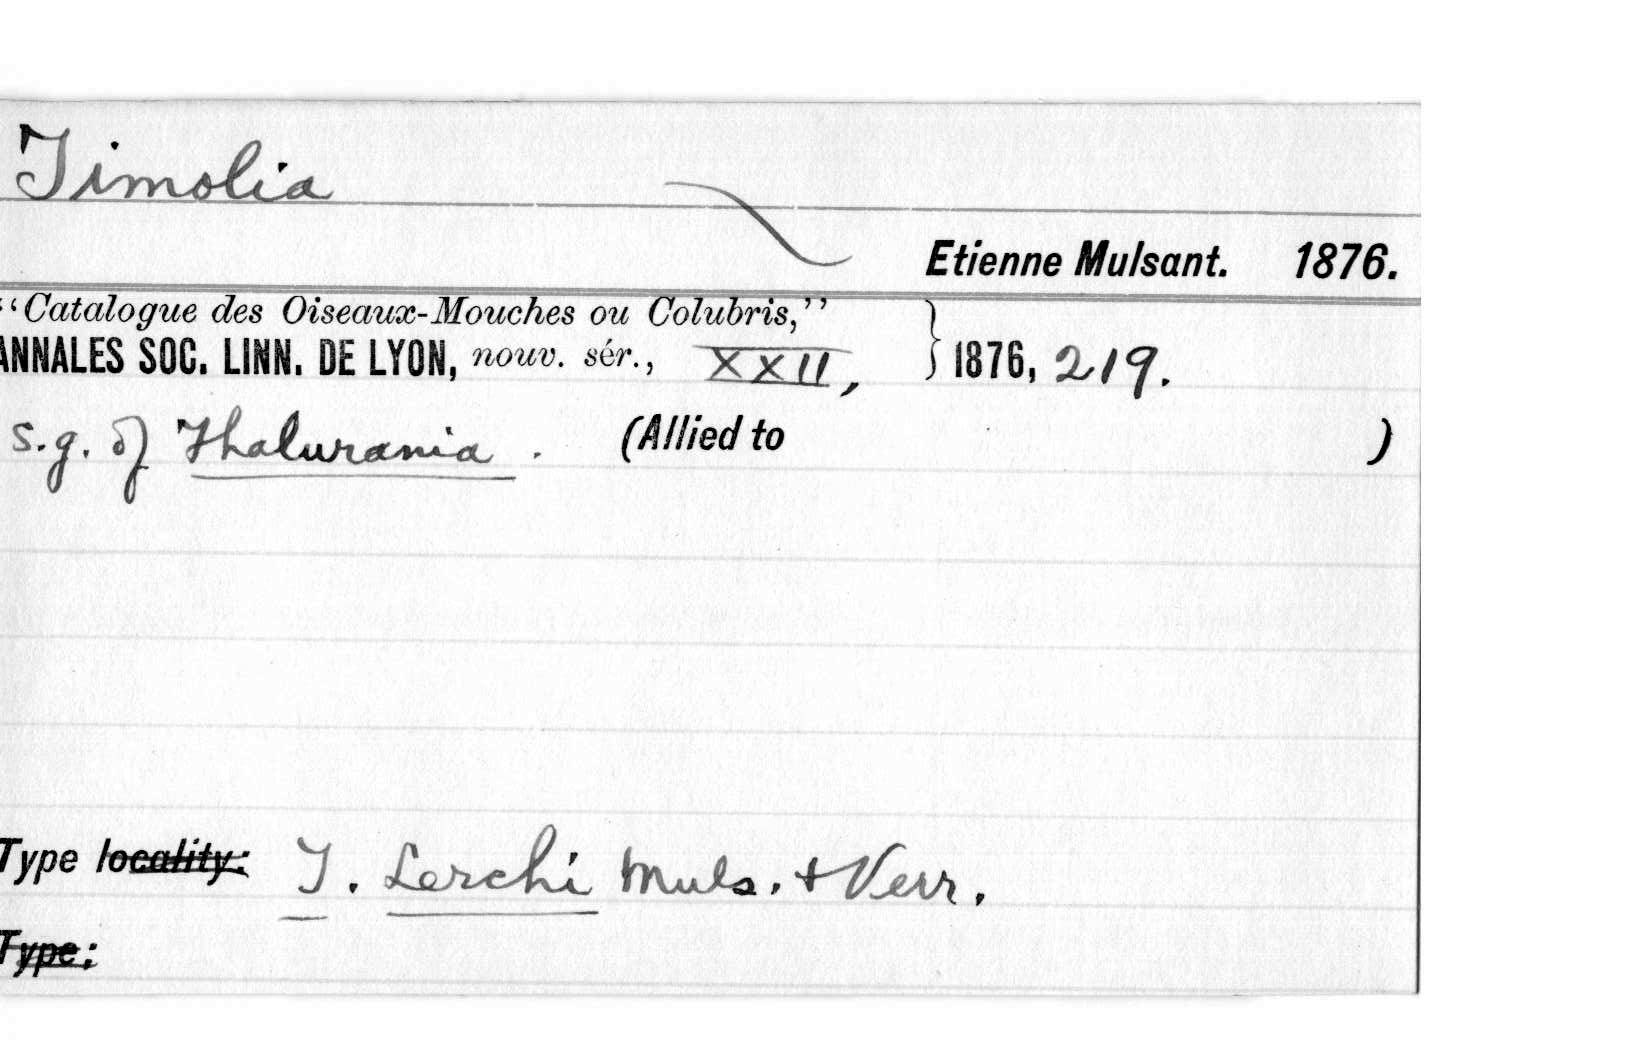 Timolia
Etienne Mulsant. 1876.
"Catalogue des Oiseaux-Mouches ou Colubris,"
ANNALES SOC. LINN. DE LYON, nouv. sér., XXII, } 1876, 219.
s.g. of Thalurania. (Allied to )
Type locality: T. Lerchi Muls. + Verr.
Type: